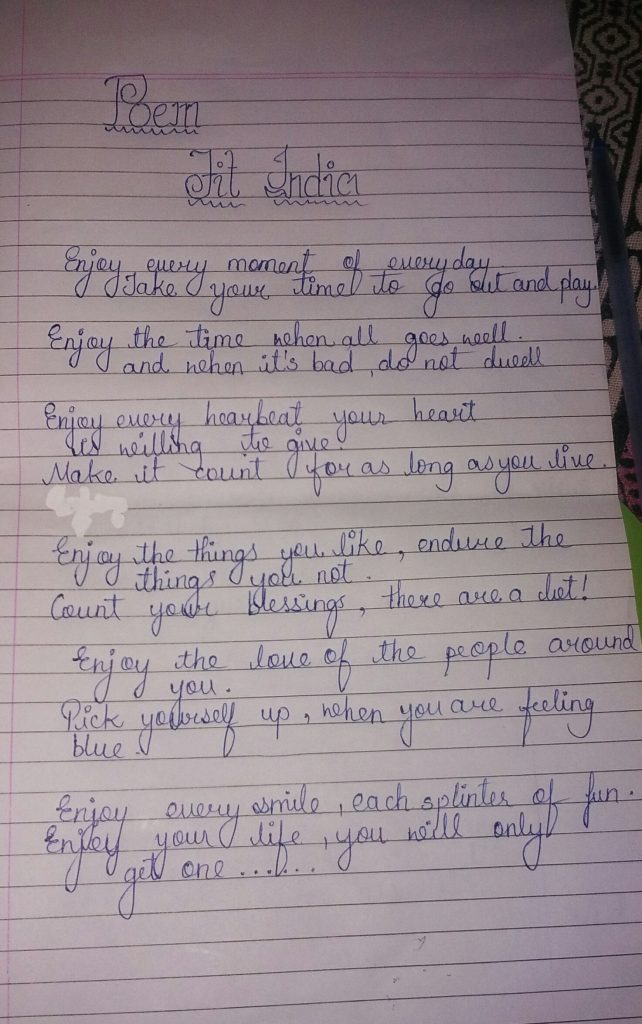 Poem
Fit India
Enjoy every moment of everyday
Take your time to go out and play.
Enjoy the time when all goes well.
and when it's bad, do not dwell
Enjoy every hearbeat your heart
is willing to give.
Make it count for as long as you live.
Enjoy the things you like, endure the
things you not.
Count your blessings, there are a lot!
Enjoy the love of the people around
you.
Pick yourself up, when you are feeling
blue.
Enjoy every smile, each splinter of fun.
Enjoy your life, you will only
get one .......